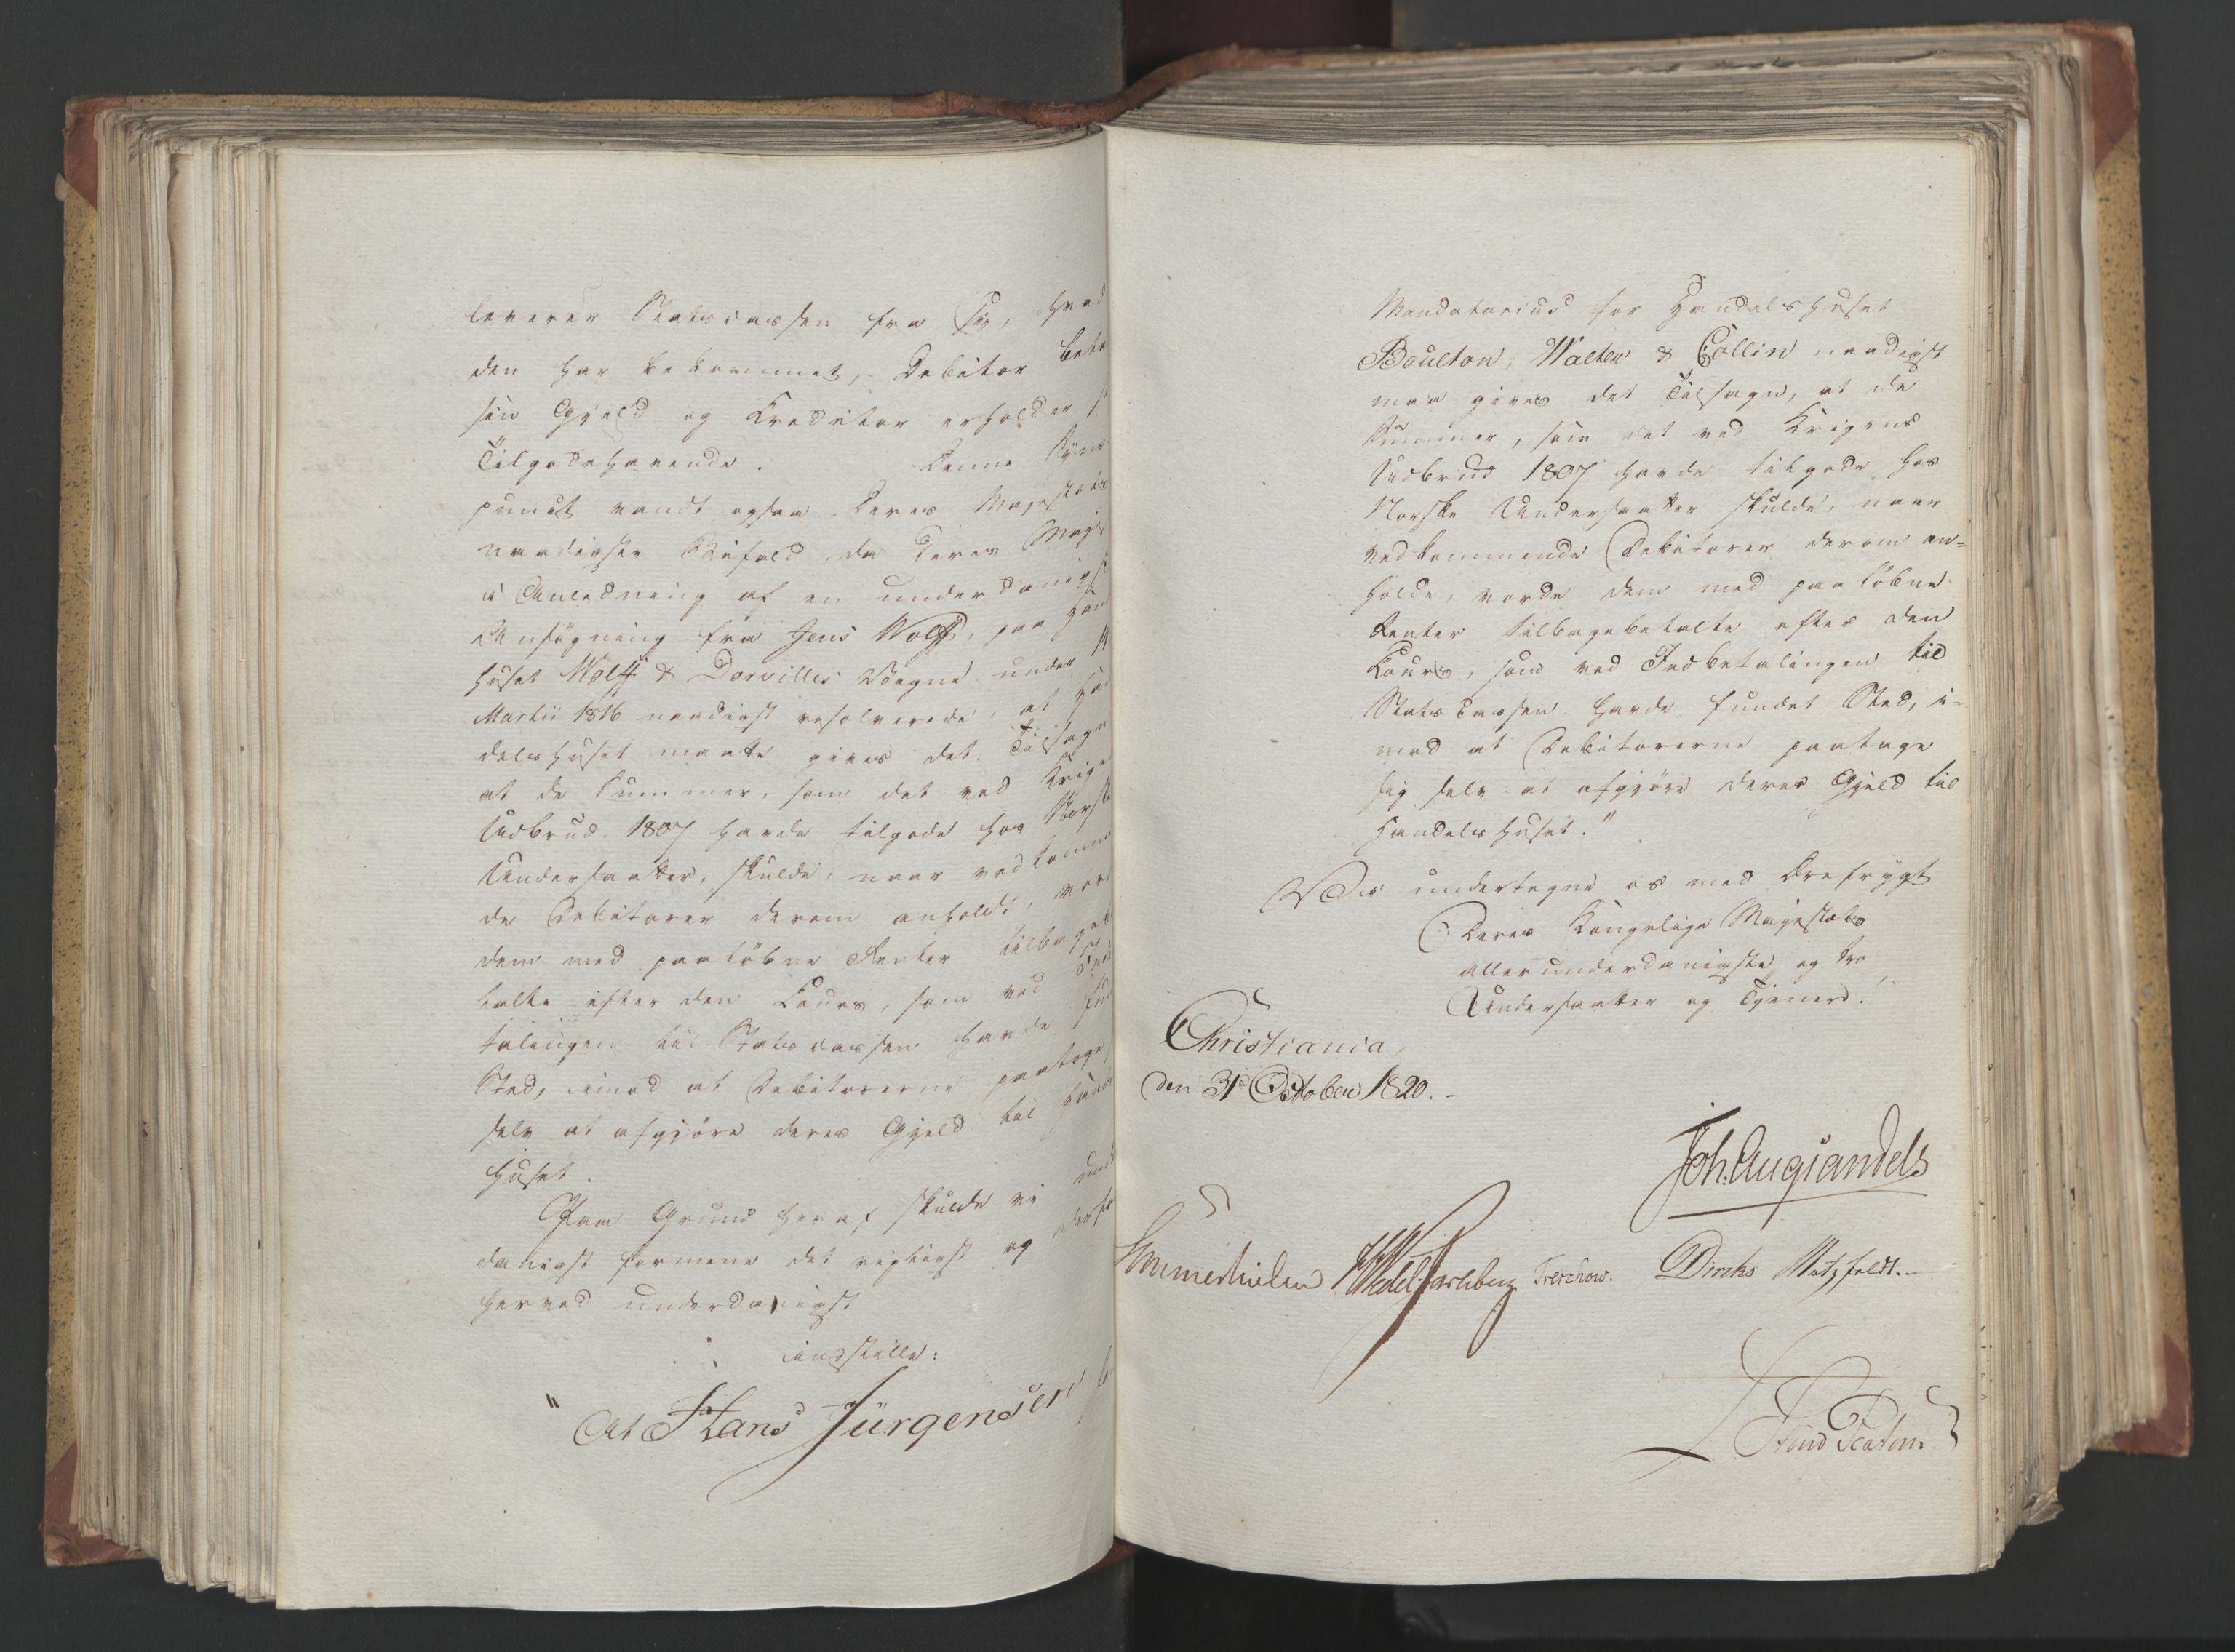 leverer Statscassen fra sig, hvad
den har bekommet, Debitor beta
sin Gjeld og Creditor erholder s
Tilgodehavende. Denne Syns
punct vandt ogsaa Deres Majestæts
naadigste Bifald, da Deres Maje
i Anledning af en underdanigst
Ansögning fra Jens Wolff, paa Han
huset Wolff & Dorvilles Vegne under
Martii 1816 naadigst resolverede, at Han
delshuset maatte gives det Tilsagn
at de Summer, som det ved Krige
Udbrud 1807 havde tilgode hos Norske
Undersaatter, skulde, naar vedkomm
de Debitorer derom anholdt, vor
dem med paalöbne Renter tilbagebe
talte efter den Cours, som ved
talingen til Statscassen havde fun
Sted, imod at Debitorerne paatoge
selv at afgjöre deres Gjeld til Hand
huset.
Paa Grund heraf skulde vi und
danigst formene det rigtigst og derfor
herved underdanigst
indstille:
"At Hans Jürgensen
Mandatarius for Handelshuset
Boulton, Walter & Collin naadigst
maa gives det Tilsagn, at de
Summer, som det ved Krigens
Udbrud 1807 havde tilgode hos
Norske Undersaatter skulde, naar
vedkommende Debitorer derom an=
holde, vorde dem med paalöbne
Renter tilbagebetalte efter den
Cours, som ved Indbetalingen til
Statscassen havde fundet Sted, i-
mod at Debitorerne paatage
sig selv at afgjöre deres Gjeld til
Handelshuset."
Vi undertegne os med Ærefrygt
Deres Kongelige Majestæts
allerunderdanigste og tro
Undersaatter og Tjenere.
Christiania,
den 31 October 1820.-
Joh. Aug Sandels
Sommerhielm HWedel Jarlsberg Treschow. Diriks Motzfeldt.-